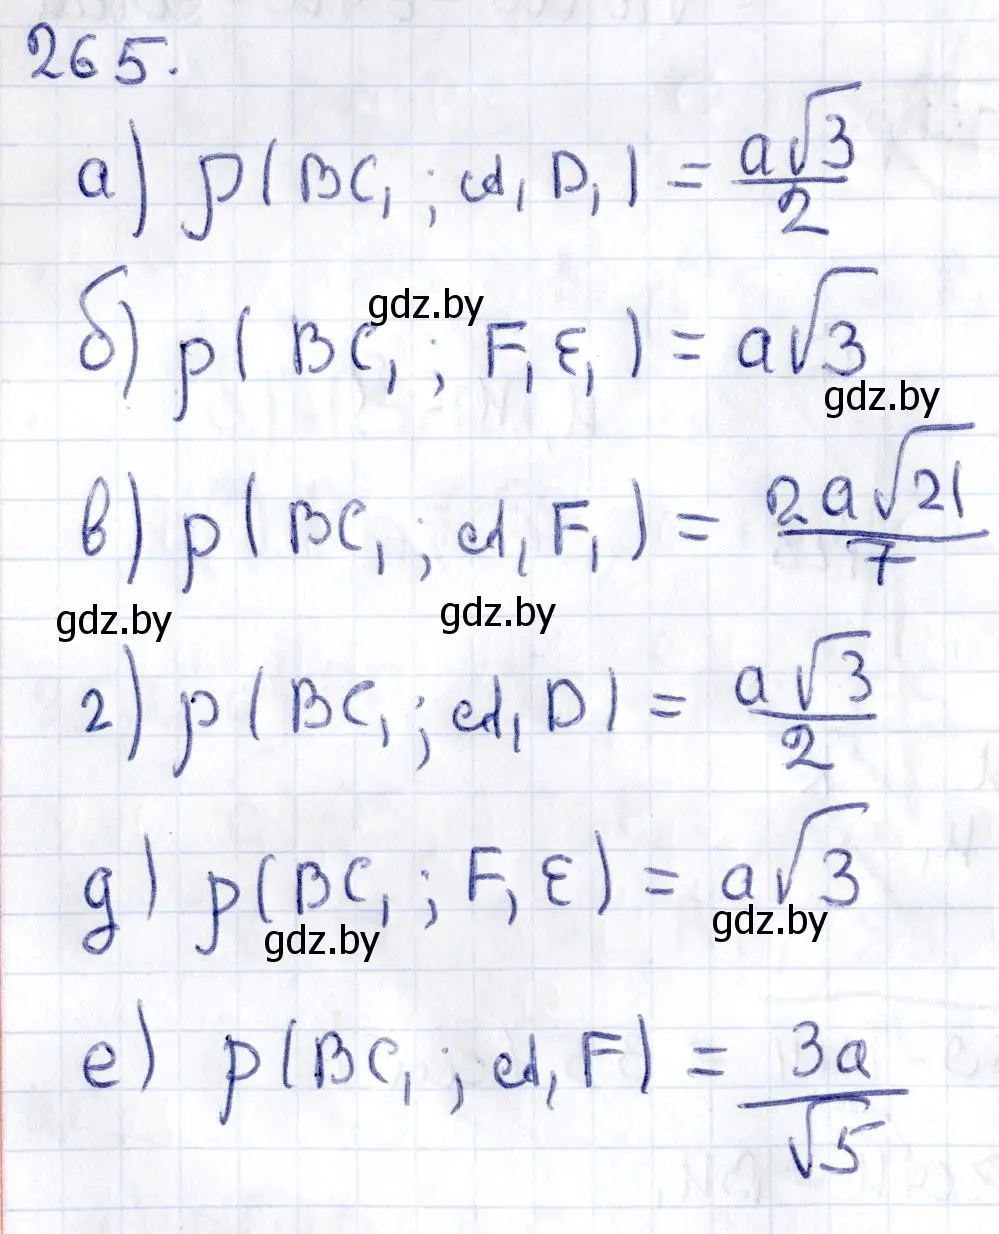 265.
а) ρ(BC₁; A₁D₁) = a√3/2
gdz.by
б) ρ(BC₁; F₁E₁) = a√3
gdz.by
в) ρ(BC₁; A₁F₁) = 2a√21/7
gdz.by gdz.by
г) ρ(BC₁; A₁D) = a√3/2
д) ρ(BC₁; F₁E) = a√3
gdz.by gdz.by
е) ρ(BC₁; A₁F) = 3a/√5